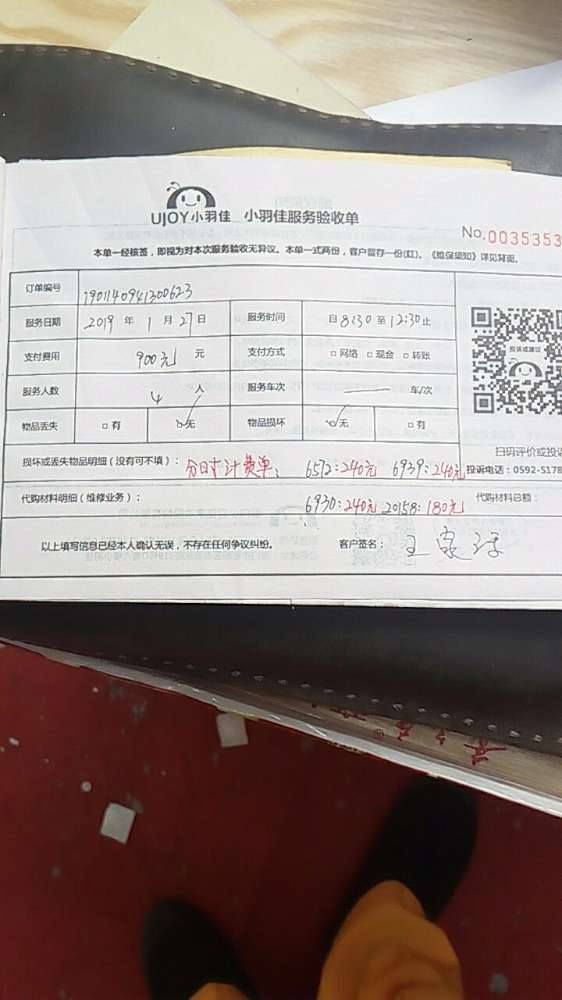 UJOY小羽佳 小羽佳服务验收单
No.0035353
本单一经核签，即视为对本次服务验收无异议。本单一式两份，客户留存一份(红)。《维保须知》详见背面。
订单编号 1901140941300623
服务日期 2019 年 1 月 27 日 服务时间 自 8:30 至 12:30 止
支付费用 900元 元 支付方式 □ 网络 □ 现金 □ 转账
服务人数 4 人 服务车次 —— 车/次
物品丢失 □ 有 ☑ 无 物品损坏 ☑ 无 □ 有
投诉或建议
扫码评价或投诉
损坏或丢失物品明细（没有可不填）： 分时计费单： 6592:240元 6939:240元
投诉电话：0592-5178
代购材料明细（维修业务）： 6930:240元 20158:180元 代购材料总额：
以上填写信息已经本人确认无误，不存在任何争议纠纷。 客户签名：